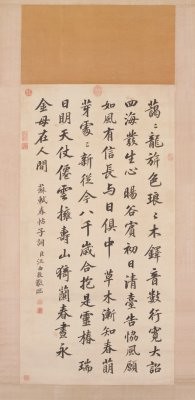 藹〻龍旂色琅〻木鐸音數行寬大詔
四海發生心暘谷賓初日清臺告協風願
如風有信長與日俱中 草木漸知春萌
芽處〻新從今八千歲合抱是靈椿 瑞
日明天仗僊雲擁壽山猗蘭春晝永
金母在人間 蘇軾春帖子詞 臣汪由敦敬